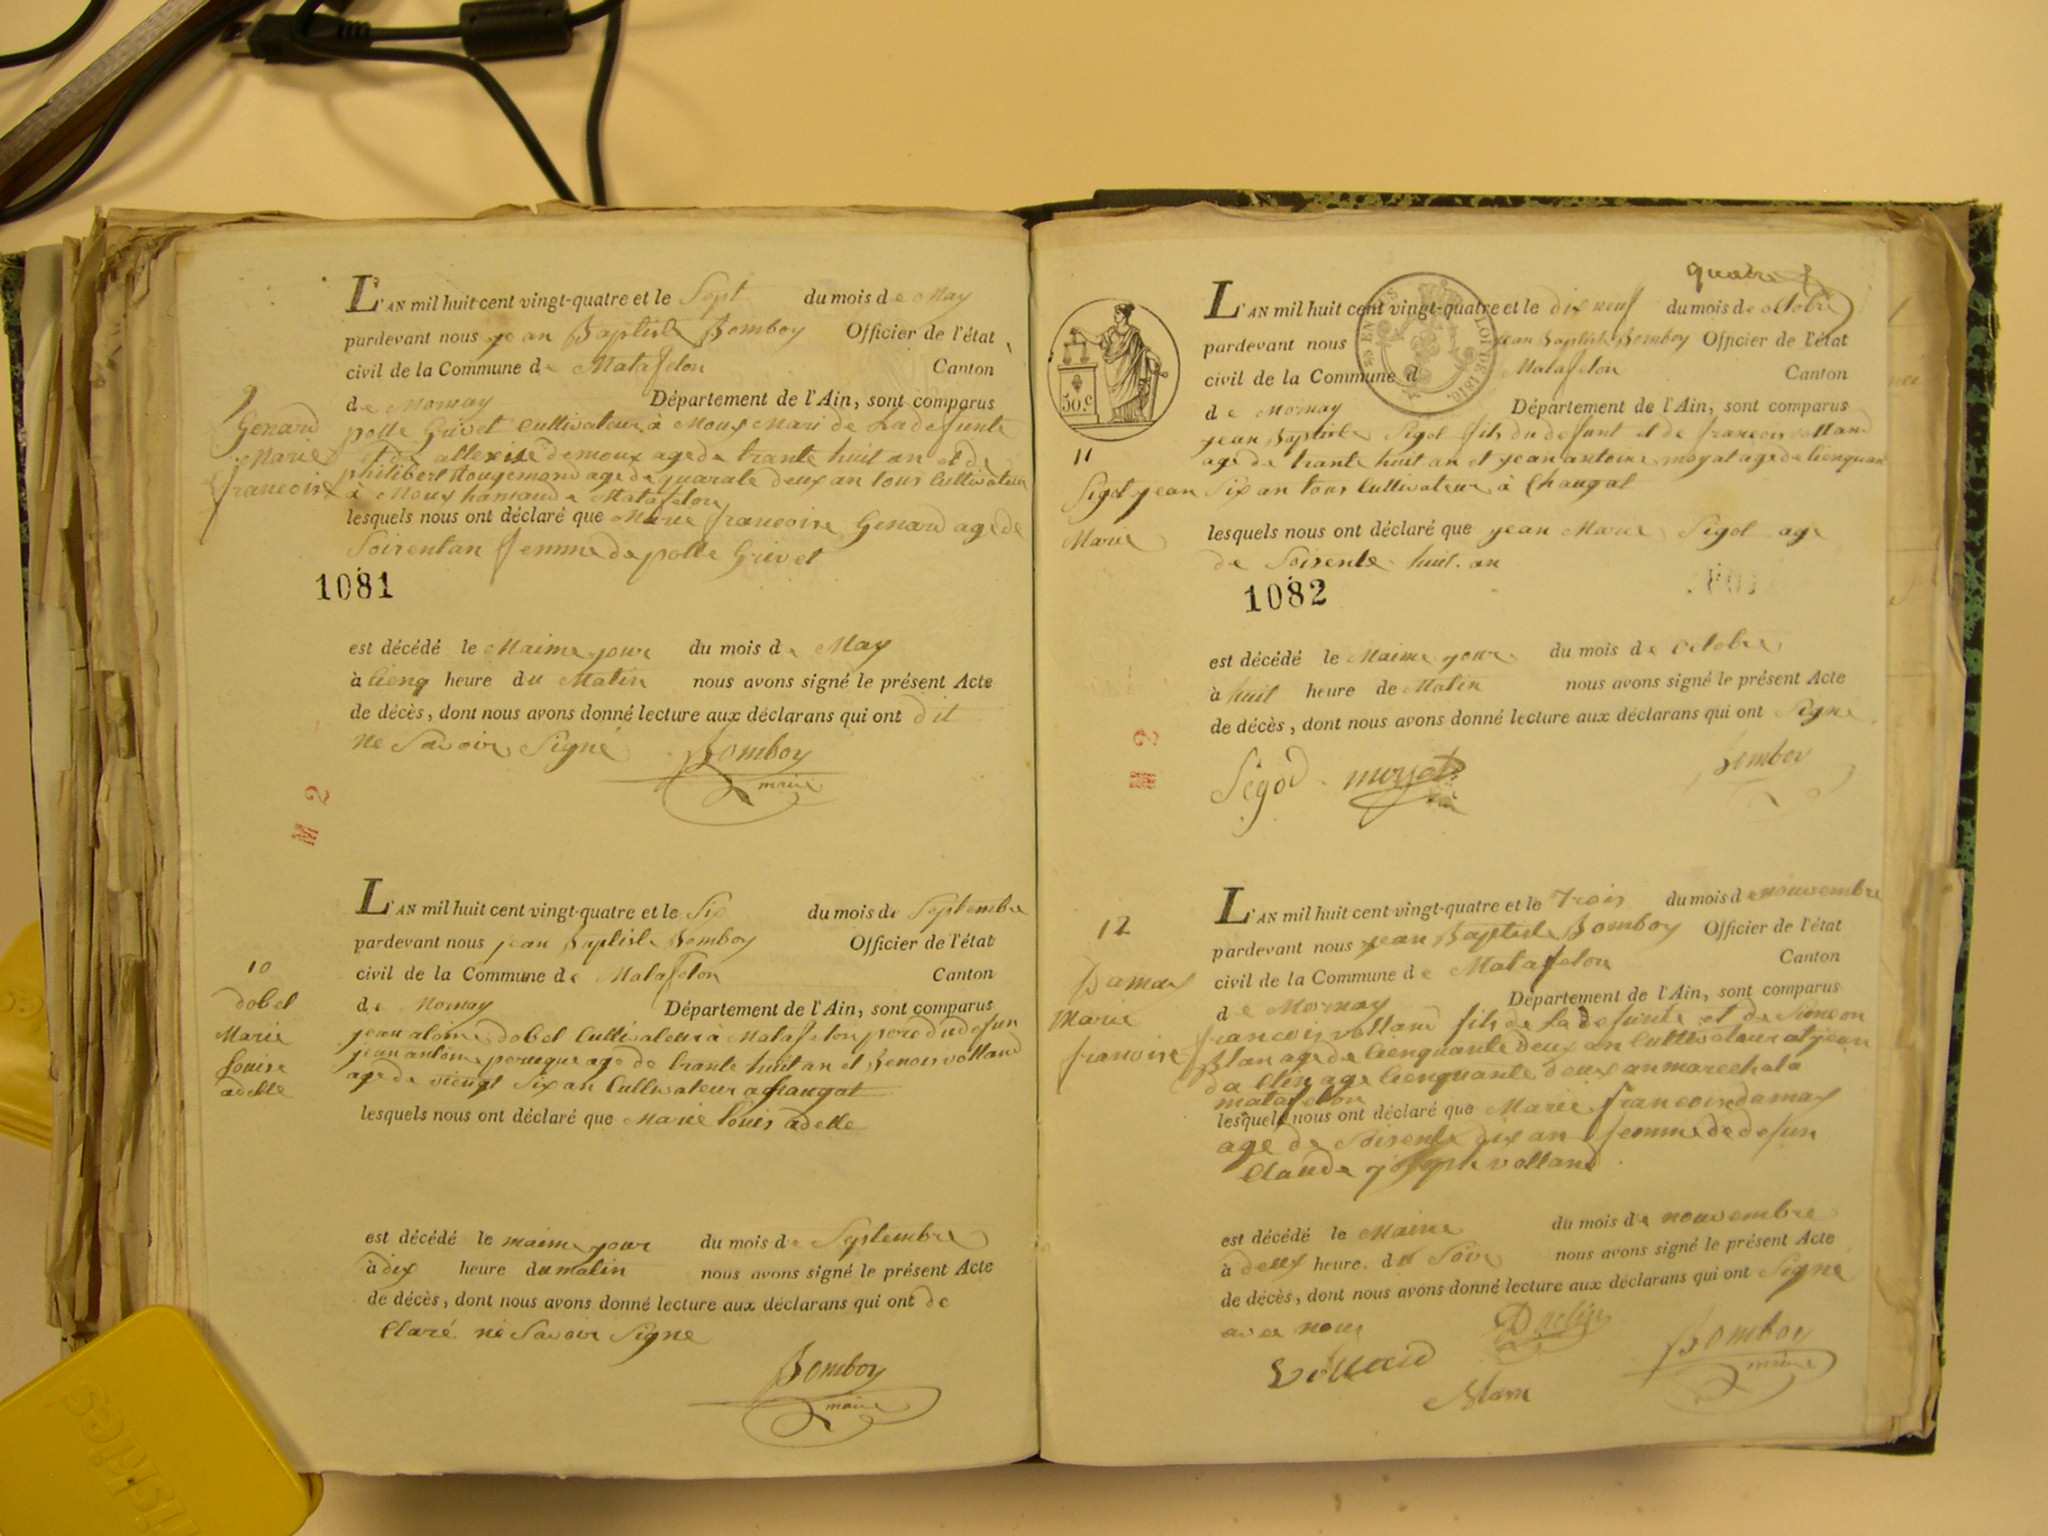 L'AN mil huit cent vingt-quatre et le Sept du mois de May
pardevant nous jean Baptiste Bomboy Officier de l'état
civil de la Commune de Matafelon Canton
de Mornay Département de l'Ain, sont comparus
polle Grivet Cultivateur à Moux Mari de La defunte
et de allexise demoux age de trante huit an et de
philibert Rougemond age de quarate deux an tous Cultivateur
à Moux hamaude Matafelon
lesquels nous ont déclaré que Marie francoise Genard age de
Soisentan femme de polle Grivet
9
Genard
Marie
francoise
1081
est décédé le Maime jour du mois de May
à cienq heure du Matin nous avons signé le présent Acte
de décès, dont nous avons donné lecture aux déclarans qui ont dit
ne Savoir Signé Bomboy
maire
L'AN mil huit cent vingt-quatre et le Six du mois de Septembre
pardevant nous jean Baptiste Bomboy Officier de l'état
civil de la Commune de Matafelon Canton
de Mornay Département de l'Ain, sont comparus
jean aloine dobel Cultivateur à Matafelon pere du defun
jean antoine peruque age de trante huit an et Benois volland
age de viengt Six an Cultivateur a Chaugat
lesquels nous ont déclaré que Marie Louis adelle
10
dobel
Marie
Louise
adelle
est décédé le maime jour du mois de Septembre
à dix heure du matin nous avons signé le présent Acte
de décès, dont nous avons donné lecture aux déclarans qui ont de
Claré ne Savoir Signe
Bomboy
maire
quatre
L'AN mil huit cent vingt-quatre et le dix neuf du mois de octobre
pardevant nous jean Baptiste Bomboy Officier de l'état
civil de la Commune d Matafelon Canton
de Mornay Département de l'Ain, sont comparus
jean Baptiste Sigot fils du defunt et de francois volland
age de trante huit an et jean antoine moyat age de cienquan
Six an tous Cultivateur à Chaugat
lesquels nous ont déclaré que jean Marie Sigot age
de Soisente huit an
50.c
LOI DE 1816
11
Sigot jean
Marie
1082
est décédé le Maime jour du mois de octobre
à huit heure de Matin nous avons signé le présent Acte
de décès, dont nous avons donné lecture aux déclarans qui ont Signe
Sigod moyat Bomboy
L'AN mil huit cent vingt-quatre et le Trois du mois de nouvembre
pardevant nous jean Baptiste Bomboy Officier de l'état
civil de la Commune de Matafelon Canton
de Mornay Département de l'Ain, sont comparus
francois volland fils de la defunte et de Simeon
Blan age de Cienquante deux an Cultivateur et jean
da Clin age Cienquante deux an marechal a
matafelon
lesquels nous ont déclaré que Marie francoise damas
age de Soisente dix an femme de defun
Claude joseph volland
12
Damas
Marie
francoise
est décédé le Maime du mois de nouvembre
à deux heure du Soir nous avons signé le présent Acte
de décès, dont nous avons donné lecture aux déclarans qui ont Signé
avec nous
volland Blan Bomboy
maire